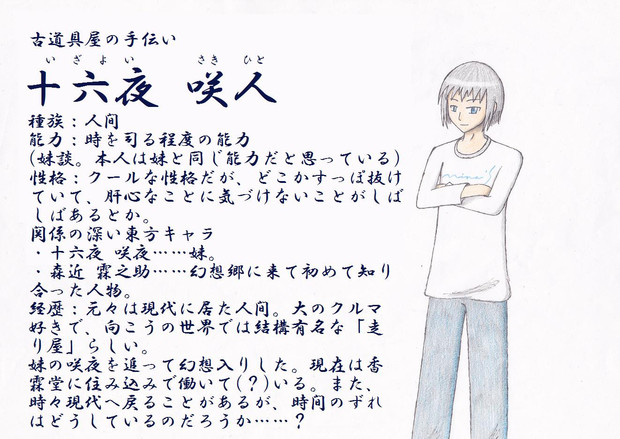 古道具屋の手伝い
いざよい さきひと
十六夜 咲人
種族：人間
能力：時を司る程度の能力
(妹談。本人は妹と同じ能力だと思っている)
性格：クールな性格だが、どこかすっぽ抜け
ていて、肝心なことに気づけないことがしば
しばあるとか。
関係の深い東方キャラ
・十六夜 咲夜……妹。
・森近 霖之助……幻想郷に来て初めて知り
合った人物。
経歴：元々は現代に居た人間。大のクルマ
好きで、向こうの世界では結構有名な「走
り屋」らしい。
妹の咲夜を追って幻想入りした。現在は香
霖堂に住み込みで働いて(？)いる。また、
時々現代へ戻ることがあるが、時間のずれ
はどうしているのだろうか……？